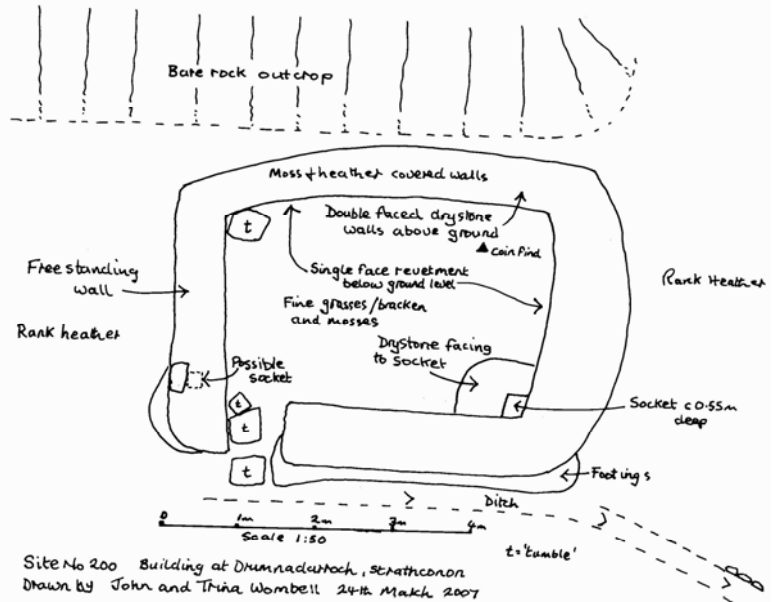 Bare rock outcrop
Moss & heather covered walls
Double faced drystone
walls above ground
coin find
Free standing
wall
Single face revetment
below ground level
Rank Heather
Fine grasses/bracken
and mosses
Rank heather
Drystone facing
to socket
Possible
socket
Socket c 0.55m
deep
t
t
t
t
Footings
Ditch
0 1m 2m 3m 4m
Scale 1:50
t = 'tumble'
Site No 200 Building at Drumnadarroch, Strathconon
Drawn by John and Trina Wombell 24th March 2007